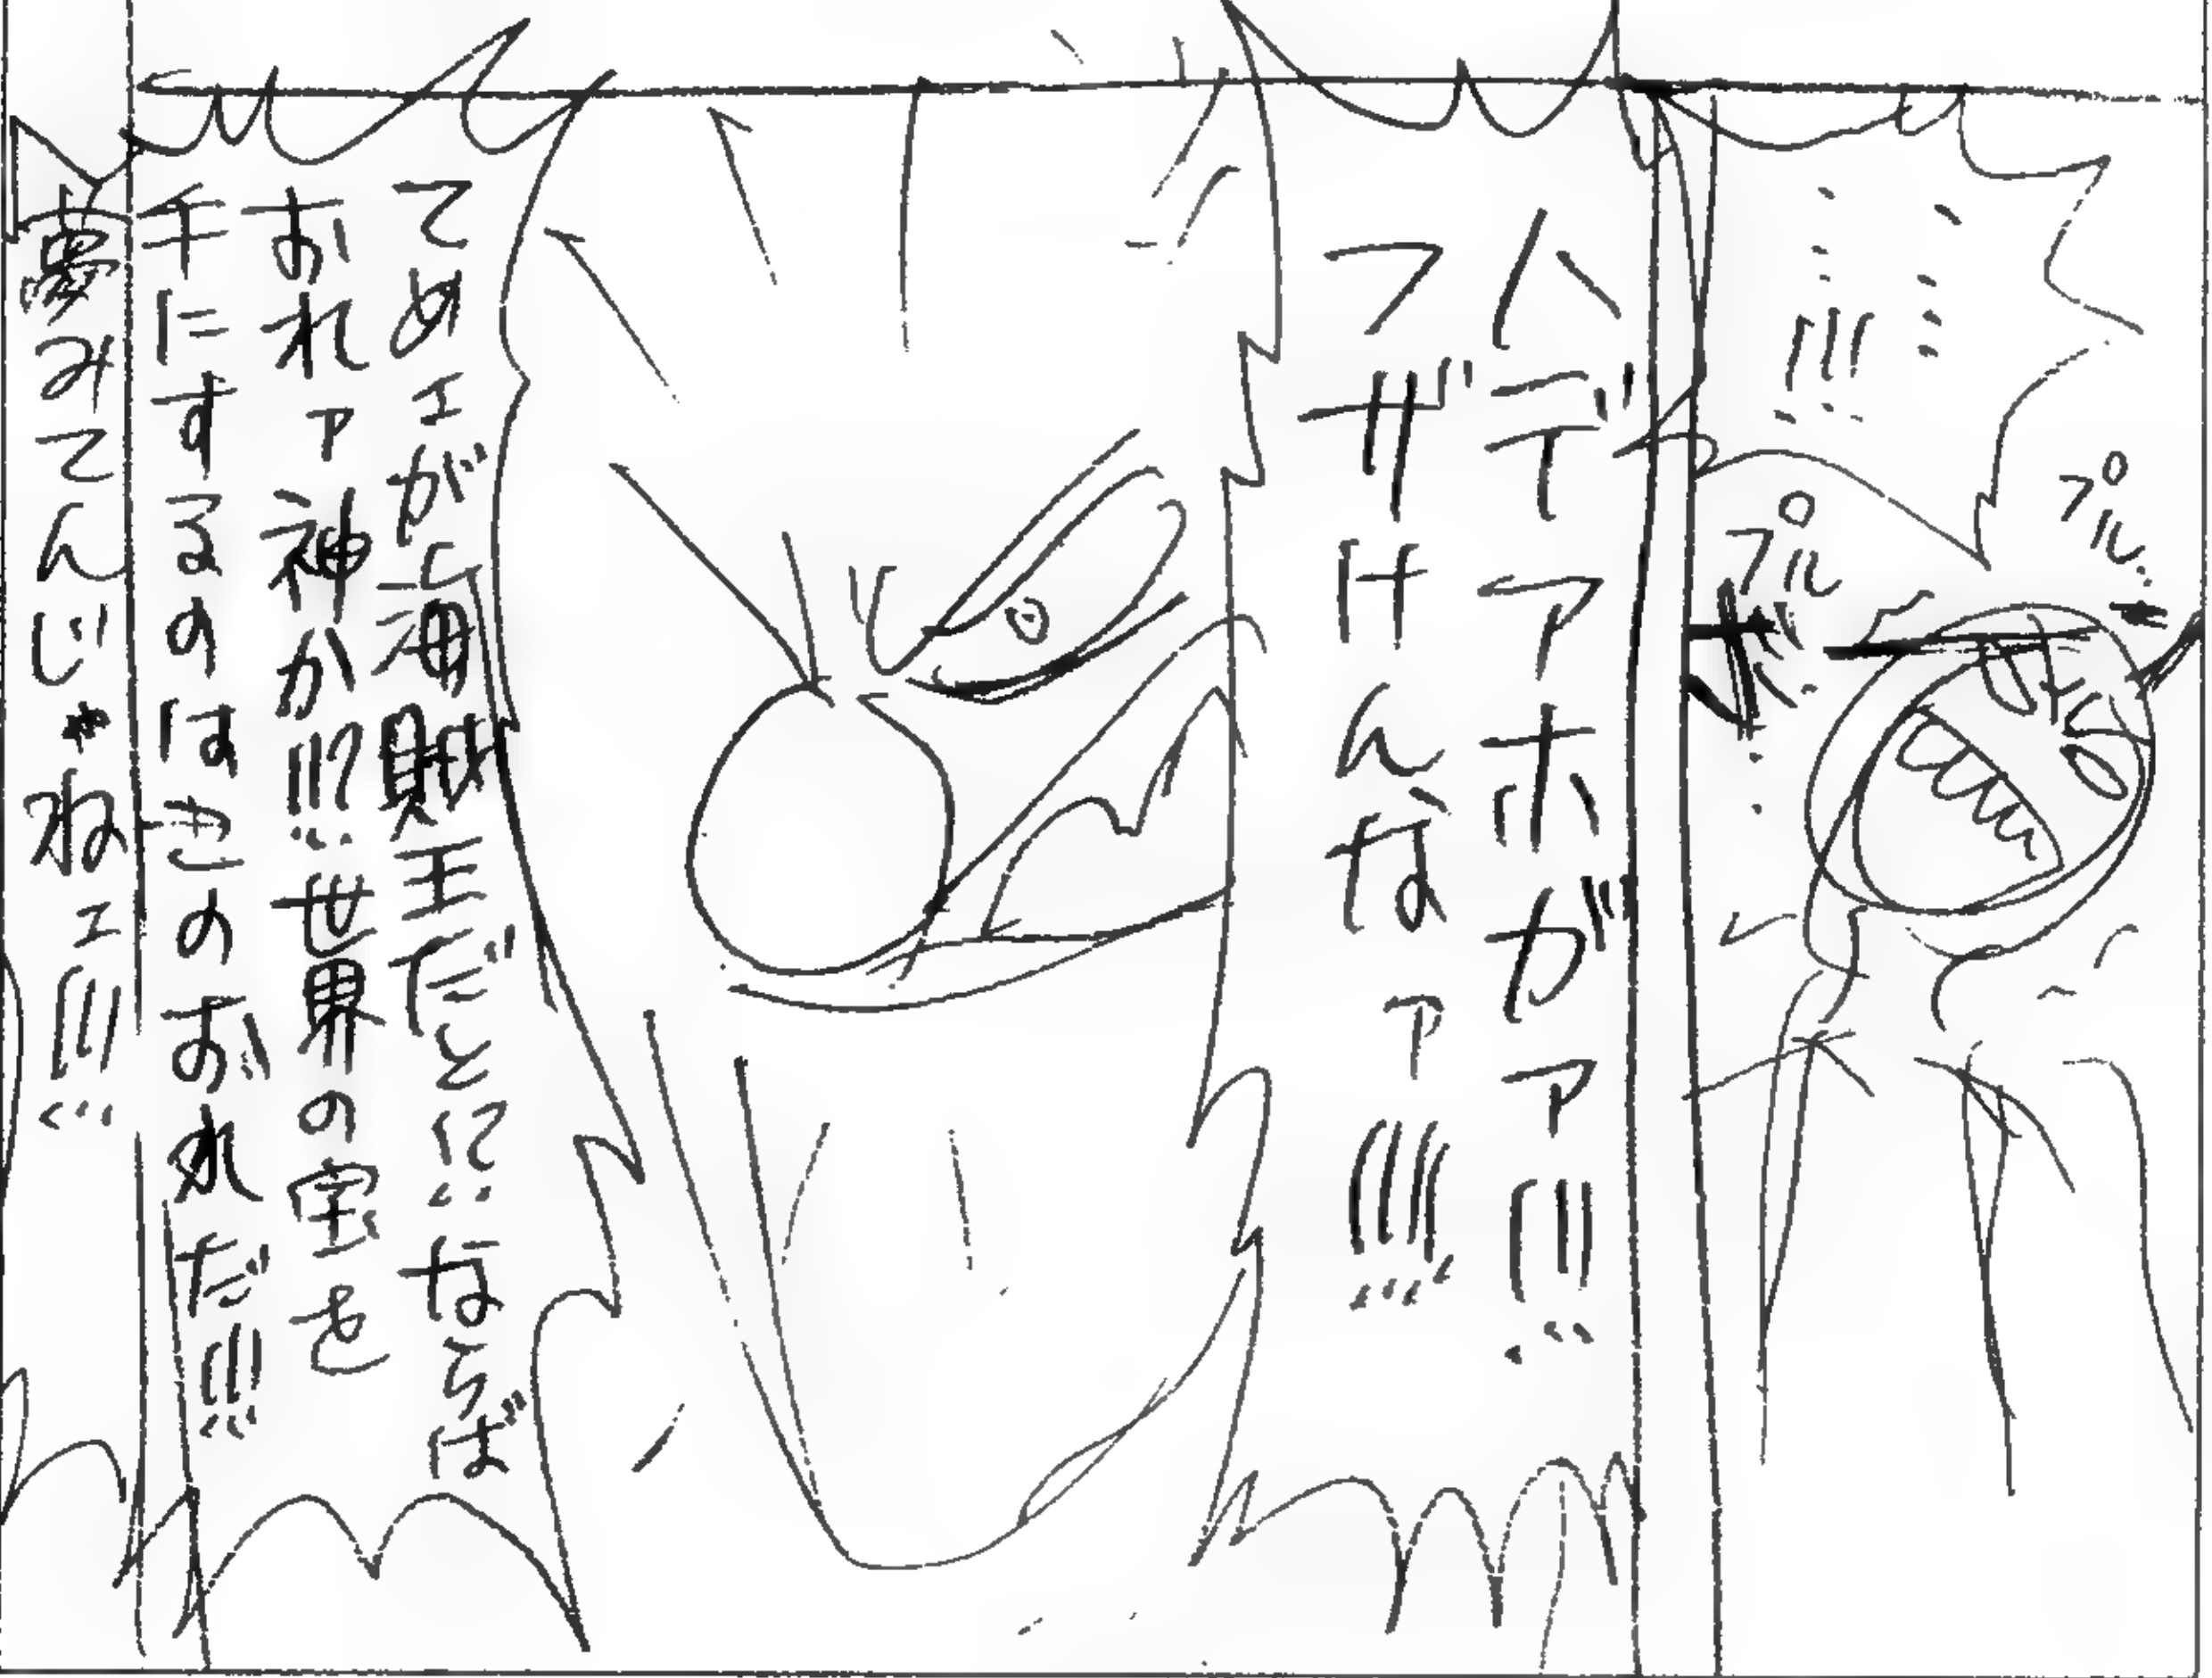 ……!!!
プル
プル…
ハデアホがァ!!!
フザけんなァ!!!!
てめェが海賊王だとい!?ならば
おれァ神か!!!?世界の宝を
手にするのはこのおれだ!!!
夢みてんじゃねェ!!!